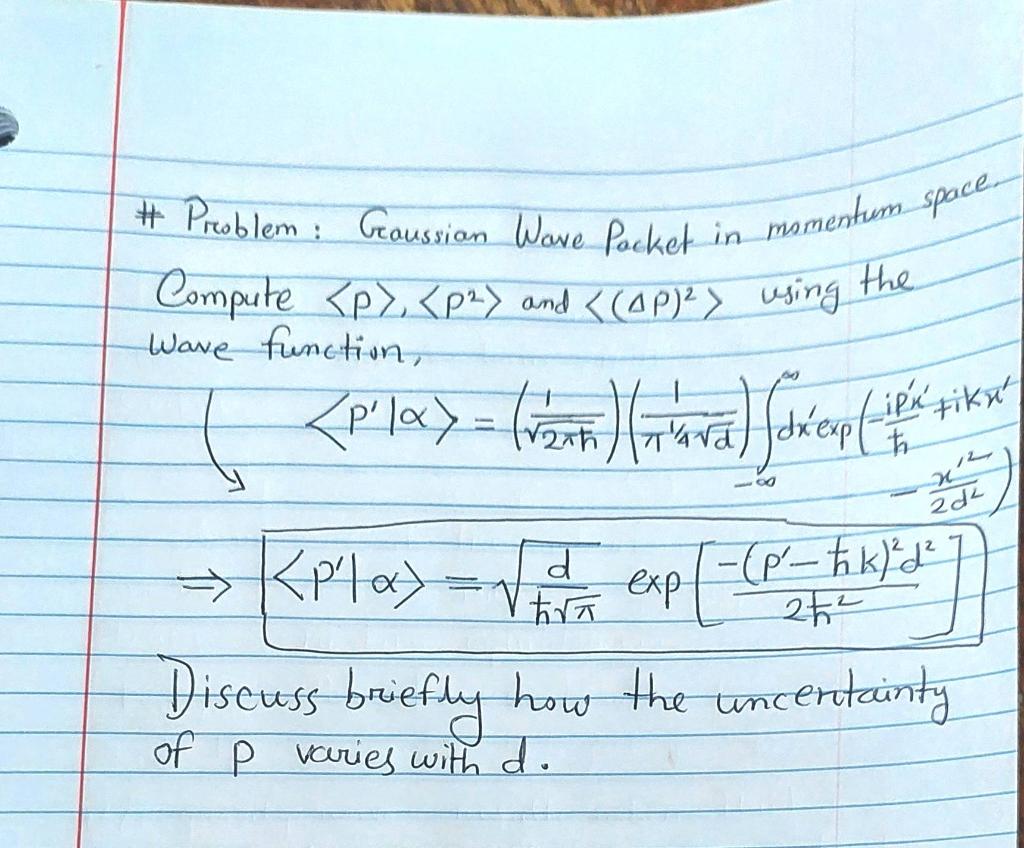 # Problem : Gaussian Wave Packet in momentum space.
Compute <p>, <p²> and <(Δp)²> using the
wave function,
<p'|α> = (1/√2πħ)(1/π^1/4√d) ∫_{-∞}^{∞} dx' exp(-ip'x'/ħ + ikx'
- x'²/2d²)
⇒ <p'|α> = √(d/ħ√π) exp[-(p'-ħk)²d²/2ħ²]
Discuss briefly how the uncertainty
of p varies with d.